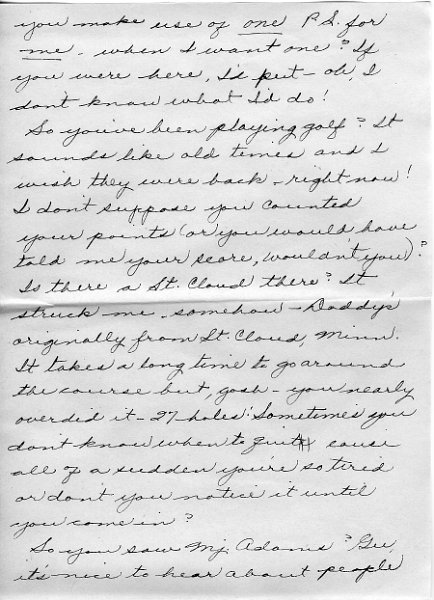 you make use of one P.S. for
me - when I want one? If
you were here, I'd put - oh, I
don't know what I'd do!
So you've been playing golf? It
sounds like old times and I
wish they were back - right now!
I don't suppose you counted
your points (or you would have
told me your score, wouldn't you)?
Is there a St. Cloud there? It
struck me - somehow - Daddy's
originally from St. Cloud, Minn.
It takes a long time to go around
the course but, gosh - you nearly
overdid it - 27 holes! Sometimes you
don't know when to quit cause
all of a sudden you're so tired
or don't you notice it until
you come in?
So you saw Mj. Adams? Gee,
it's nice to hear about people